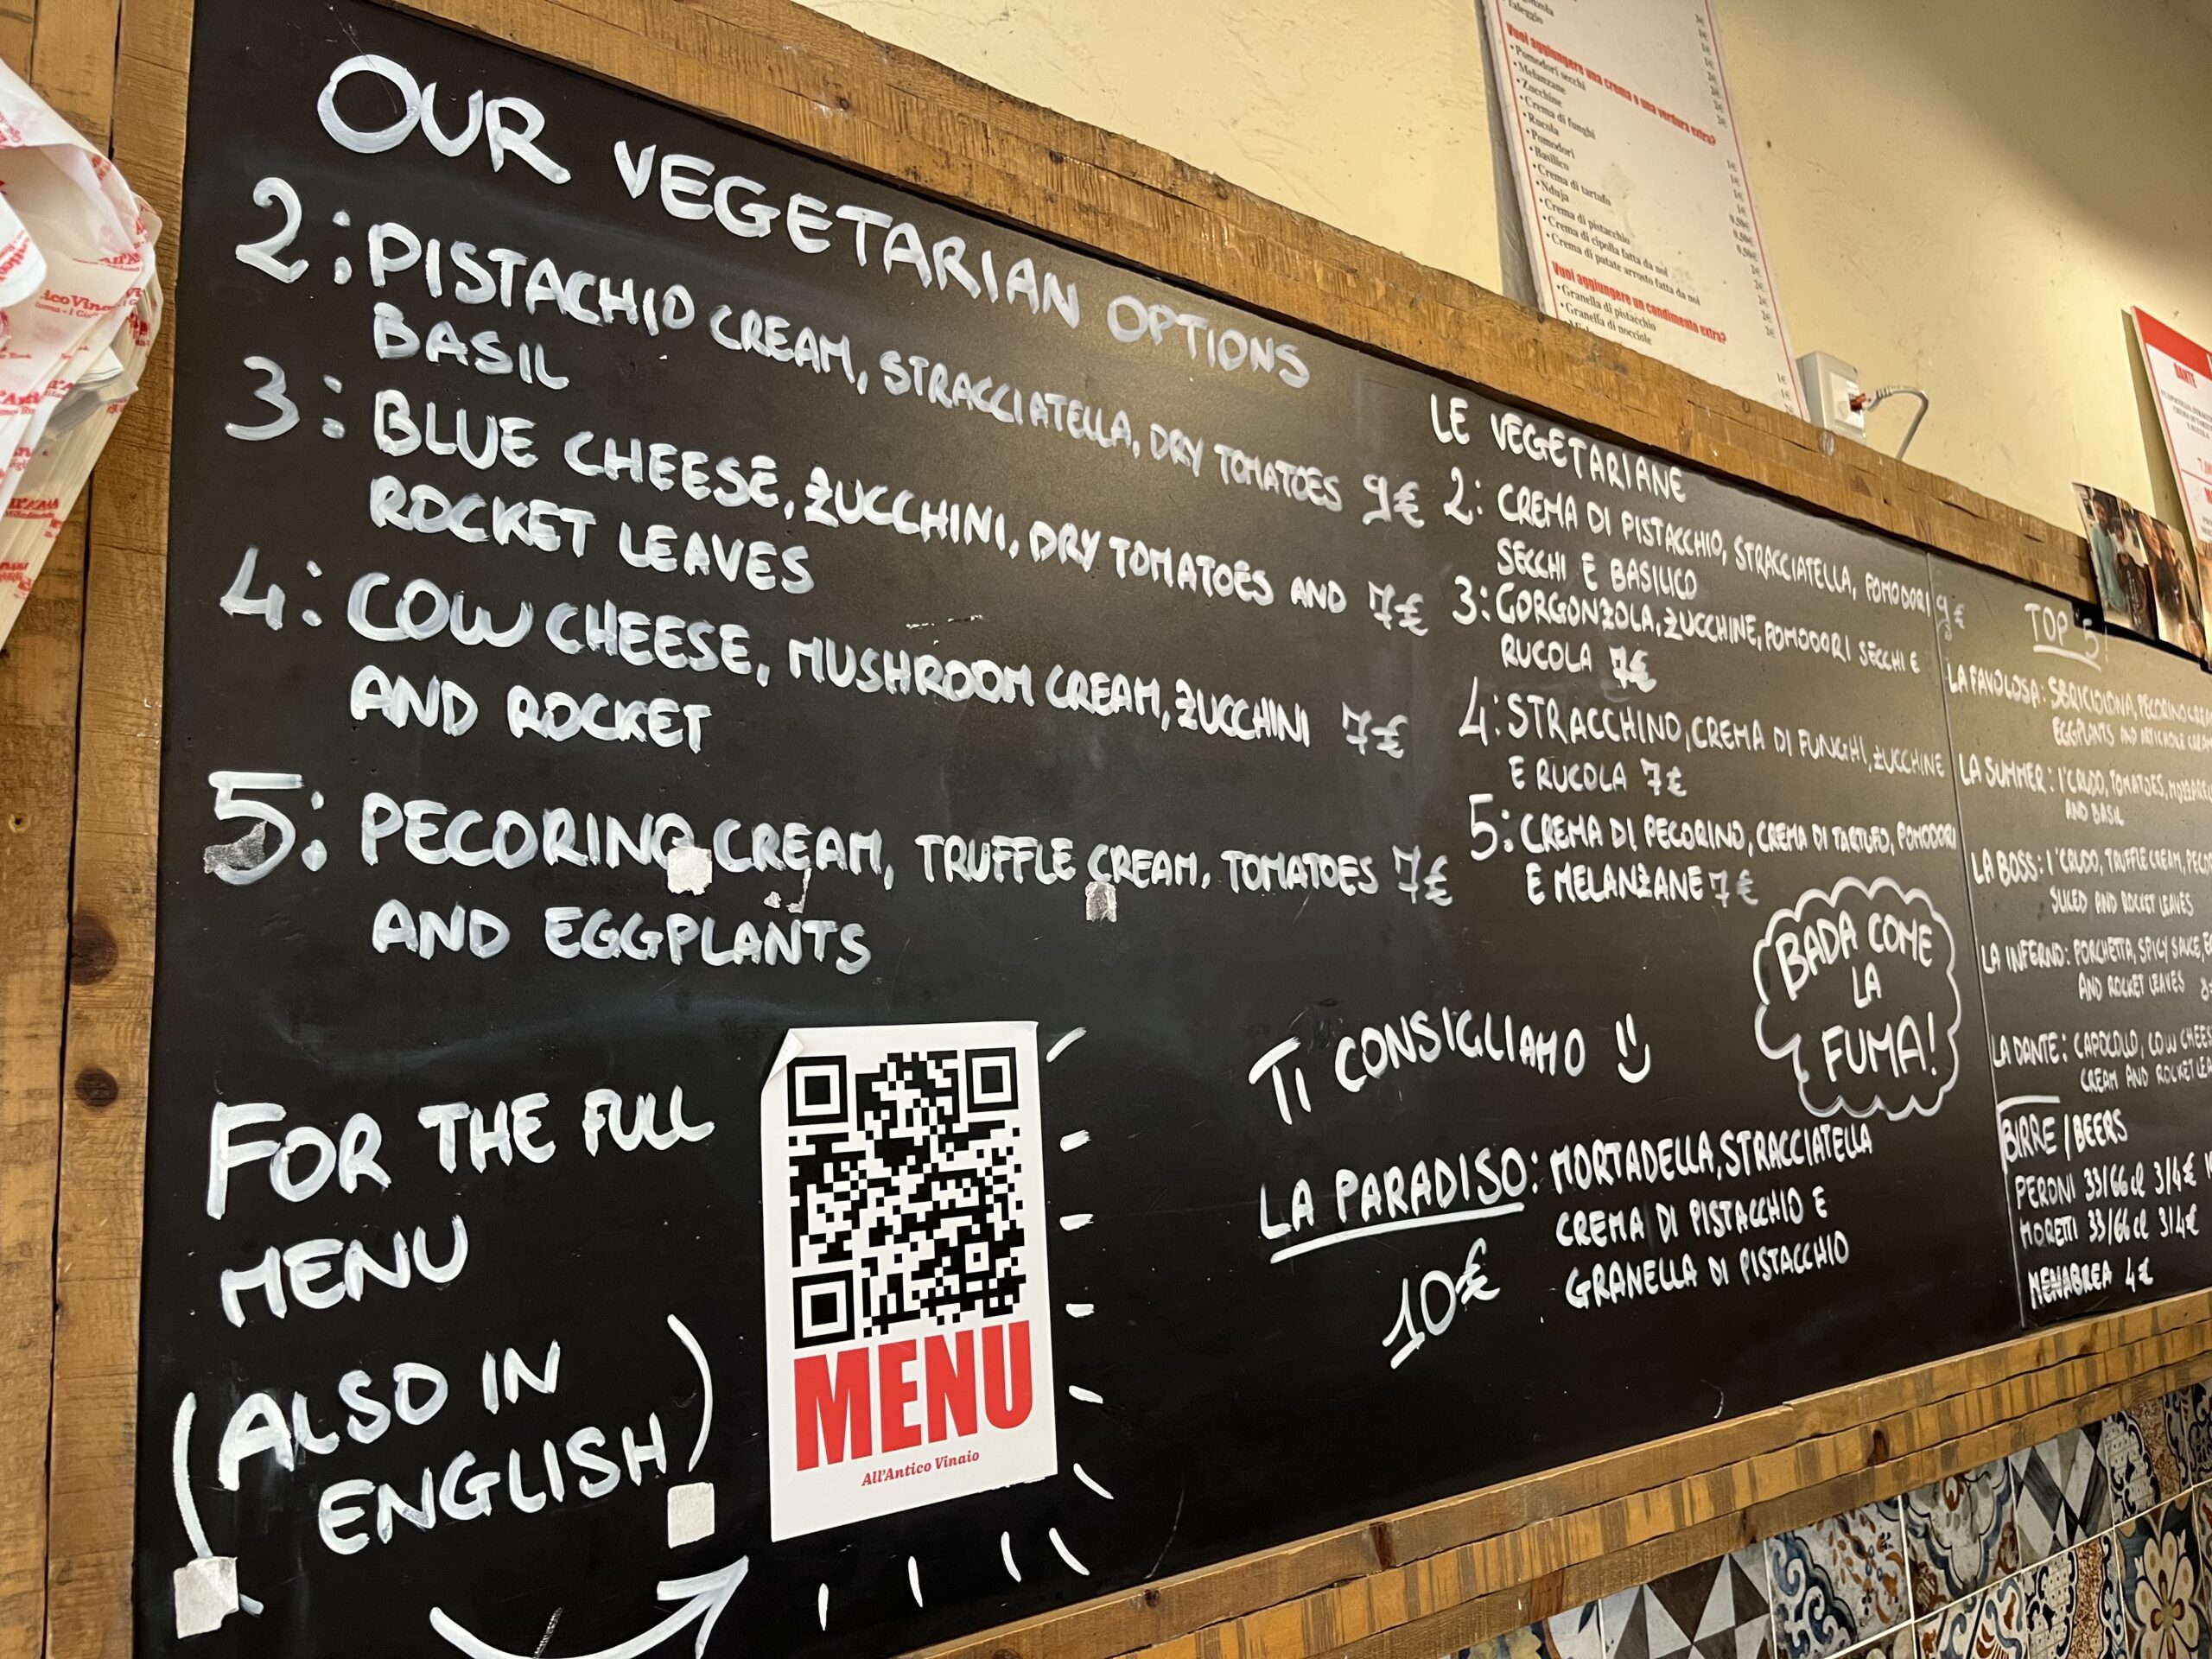 OUR VEGETARIAN OPTIONS
2: PISTACHIO CREAM, STRACCIATELLA, DRY TOMATOES 9€
BASIL
3: BLUE CHEESE, ZUCCHINI, DRY TOMATOES AND 7€
ROCKET LEAVES
4: COW CHEESE, MUSHROOM CREAM, ZUCCHINI 7€
AND ROCKET
5: PECORINO CREAM, TRUFFLE CREAM, TOMATOES 7€
AND EGGPLANTS
FOR THE FULL
MENU
(ALSO IN
ENGLISH)
MENU
All'Antico Vinaio
LE VEGETARIANE
2: CREMA DI PISTACCHIO, STRACCIATELLA, POMODORI 9€
SECCHI E BASILICO
3: GORGONZOLA, ZUCCHINE, POMODORI SECCHI E
RUCOLA 7€
4: STRACCHINO, CREMA DI FUNGHI, ZUCCHINE
E RUCOLA 7€
5: CREMA DI PECORINO, CREMA DI TARTUFO, POMODORI
E MELANZANE 7€
BADA COME
LA
FUMA!
TI CONSIGLIAMO
LA PARADISO: MORTADELLA, STRACCIATELLA
CREMA DI PISTACCHIO E
GRANELLA DI PISTACCHIO
10€
TOP 5!
LA FAVOLOSA: SBRICIOLONA, PECORINO
EGGPLANTS AND ARTICHOKE
LA SUMMER: 1°CRUDO, TOMATOES,
AND BASIL
LA BOSS: 1°CRUDO, TRUFFLE CREAM,
SLICED AND ROCKET LEAVES
LA INFERNO: PORCHETTA, SPICY SAUCE,
AND ROCKET LEAVES
LA DANTE: CAPOCOLLO, COW
CREAM AND ROCKET
BIRRE/BEERS
PERONI 33/66cl 3/4€
MORETTI 33/66cl 3/4€
MENABREA 4€
Taleggio
Vuoi aggiungere una crema o una verdura extra?
• Pomodori secchi
• Melanzane
• Zucchine
• Crema di funghi
• Rucola
• Pomodori
• Basilico
• Crema di tartufo
• Nduja
• Crema di pistacchio
• Crema di cipolla fatta da noi
• Crema di patate arrosto fatta da noi
Vuoi aggiungere un condimento extra?
• Granella di pistacchio
• Granella di nocciole